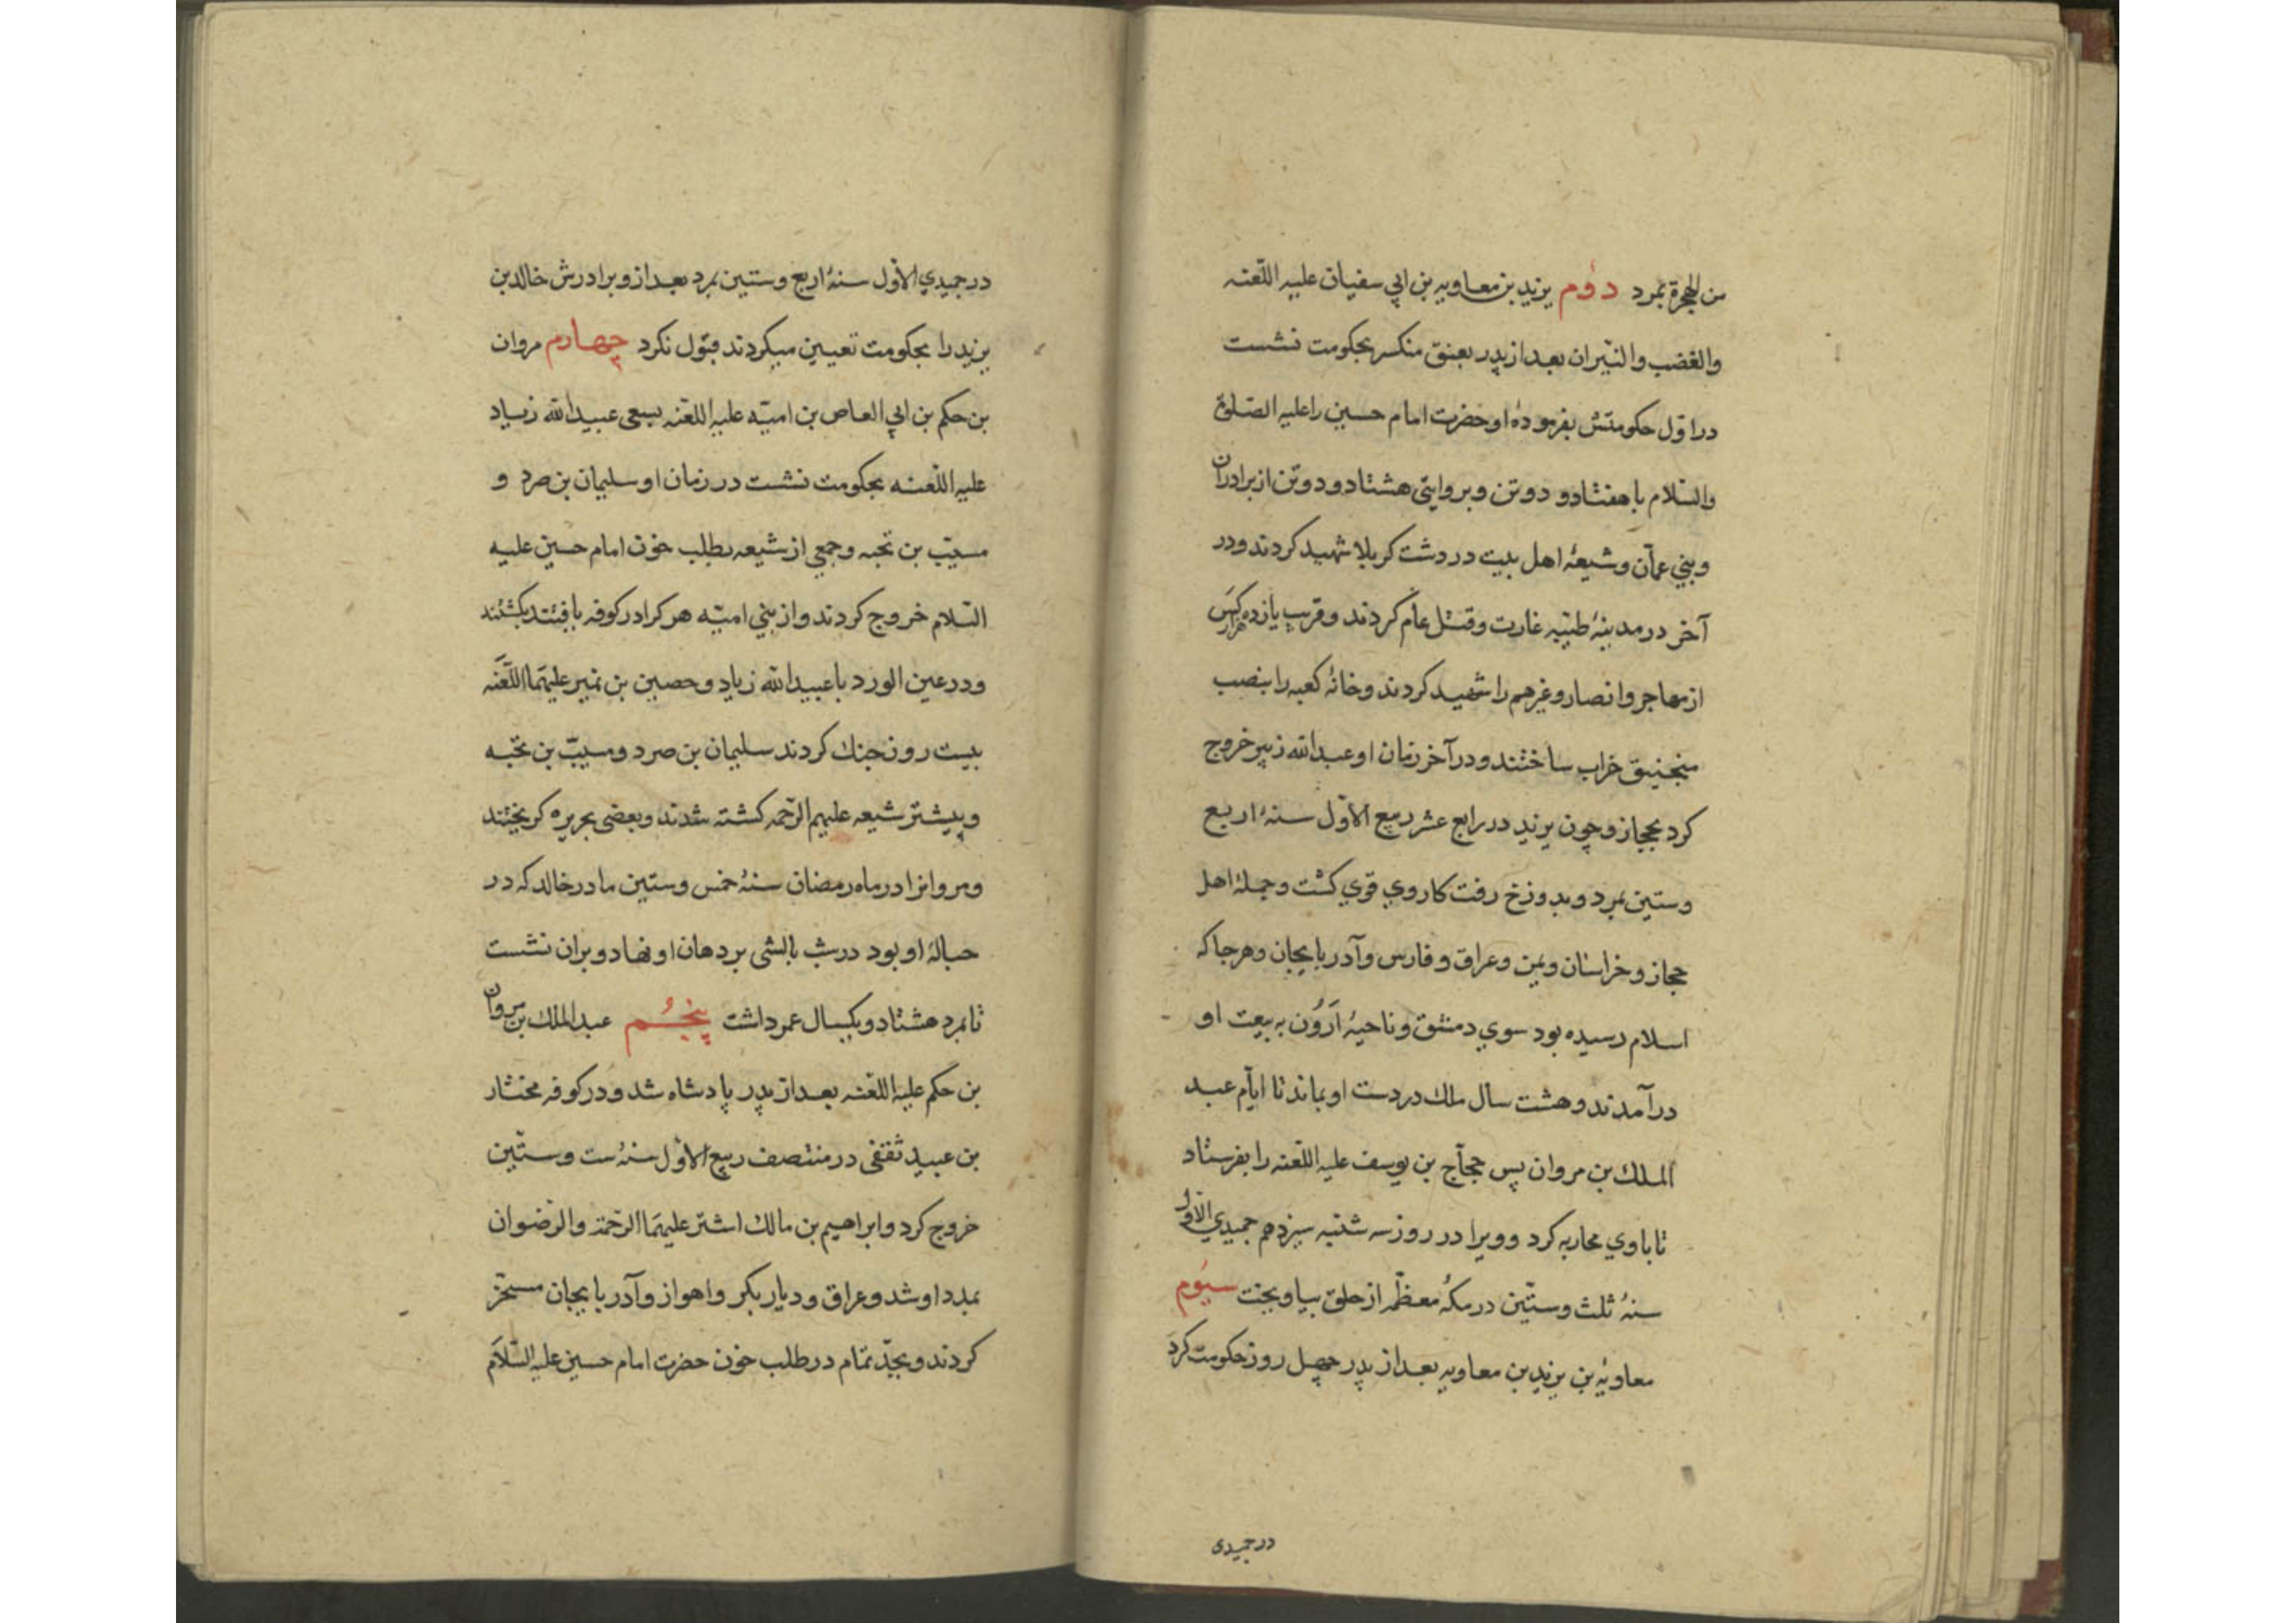 من الهجرة بمرد دوم یزید بن معاویه بن ابي سفیان علیه اللّعنه
والغضب والنّیران بعد از پدر بعنق منکسر بحکومت نشست
در اوّل حکومتش بفرموده او حضرت امام حسین را علیه الصّلوة
والسّلام با هفتاد و دو تن و بروایتی هشتاد و دو تن از برادران
و بني عمّان و شیعهٔ اهل بیت در دشت کربلا شهید کردند و در
آخر در مدینهٔ طیّبه غارت و قتل عام کردند و قریب یازده هزار کس
از مهاجر و انصار و غیرهم را شهید کردند و خانهٔ کعبه را بنصب
منجنیق خراب ساختند و در آخر زمان او عبدالله زبیر خروج
کرد بحجاز و چون یزید در رابع عشر ربیع الاوّل سنهٔ اربع
و ستین بمرد و بدوزخ رفت کار وي قوي گشت و جملهٔ اهل
حجاز و خراسان و یمن و عراق و فارس و آدربایجان و هر جا که
اسلام رسیده بود سوي دمشق و ناحیهٔ اَرَوُن به بیعت او
درآمدند و هشت سال ملک در دست او بماند تا ایّام عبد
الملک بن مروان پس حجّاج بن یوسف علیه اللّعنه را بفرستاد
تا باوي محاربه کرد و ویرا در روز سه شنبه سیزدهم جمیدي الاوّل
سنهٔ ثلث و ستّین در مکهٔ معظّمه از حلق بیاویخت سیوم
معاویهٔ بن یزید بن معاویه بعد از پدر چهل روز حکومت کرد
در جمیدی
در جمیدي الاوّل سنهٔ اربع و ستین بمرد بعد از و برادرش خالد بن
یزید را بحکومت تعیین میکردند قبول نکرد چهارم مروان
بن حکم بن ابي العاص بن امیّه علیه اللعنه بسعی عبیدالله زیاد
علیه اللّعنه بحکومت نشست در زمان او سلیمان بن صرد و
مسیّب بن نجبه و جمعي از شیعه بطلب خون امام حسین علیه
السّلام خروج کردند و از بني امیّه هر کرا در کوفه یافتند بکشتند
و در عین الورد با عبیدالله زیاد و حصین بن نمیر علیهما اللّعنه
بیست روز جنک کردند سلیمان بن صرد و مسیّب بن نجبه
و بیشتر شیعه علیهم الرّحمه کشته شدند و بعضی بجزیره کریختند
و مروانرا در ماه رمضان سنهٔ خمس و ستین مادر خالد که در
حبالهٔ او بود در شب بالشی بر دهان او نهاد و بران نشست
تا بمرد هشتاد و یکسال عمر داشت پنجُم عبدالملک بن مروان
بن حکم علیه اللّعنه بعد از پدر پادشاه شد و در کوفه مختار
بن عبید ثقفی در منتصف ربیع الاوّل سنهٔ ست و ستّین
خروج کرد و ابراهیم بن مالک اشتر علیهما الرّحمة والرّضوان
بمدد او شد و عراق و دیار بکر و اهواز و آدربایجان مسخّر
کردند و بجدّ تمام در طلب خون حضرت امام حسین علیه السّلام